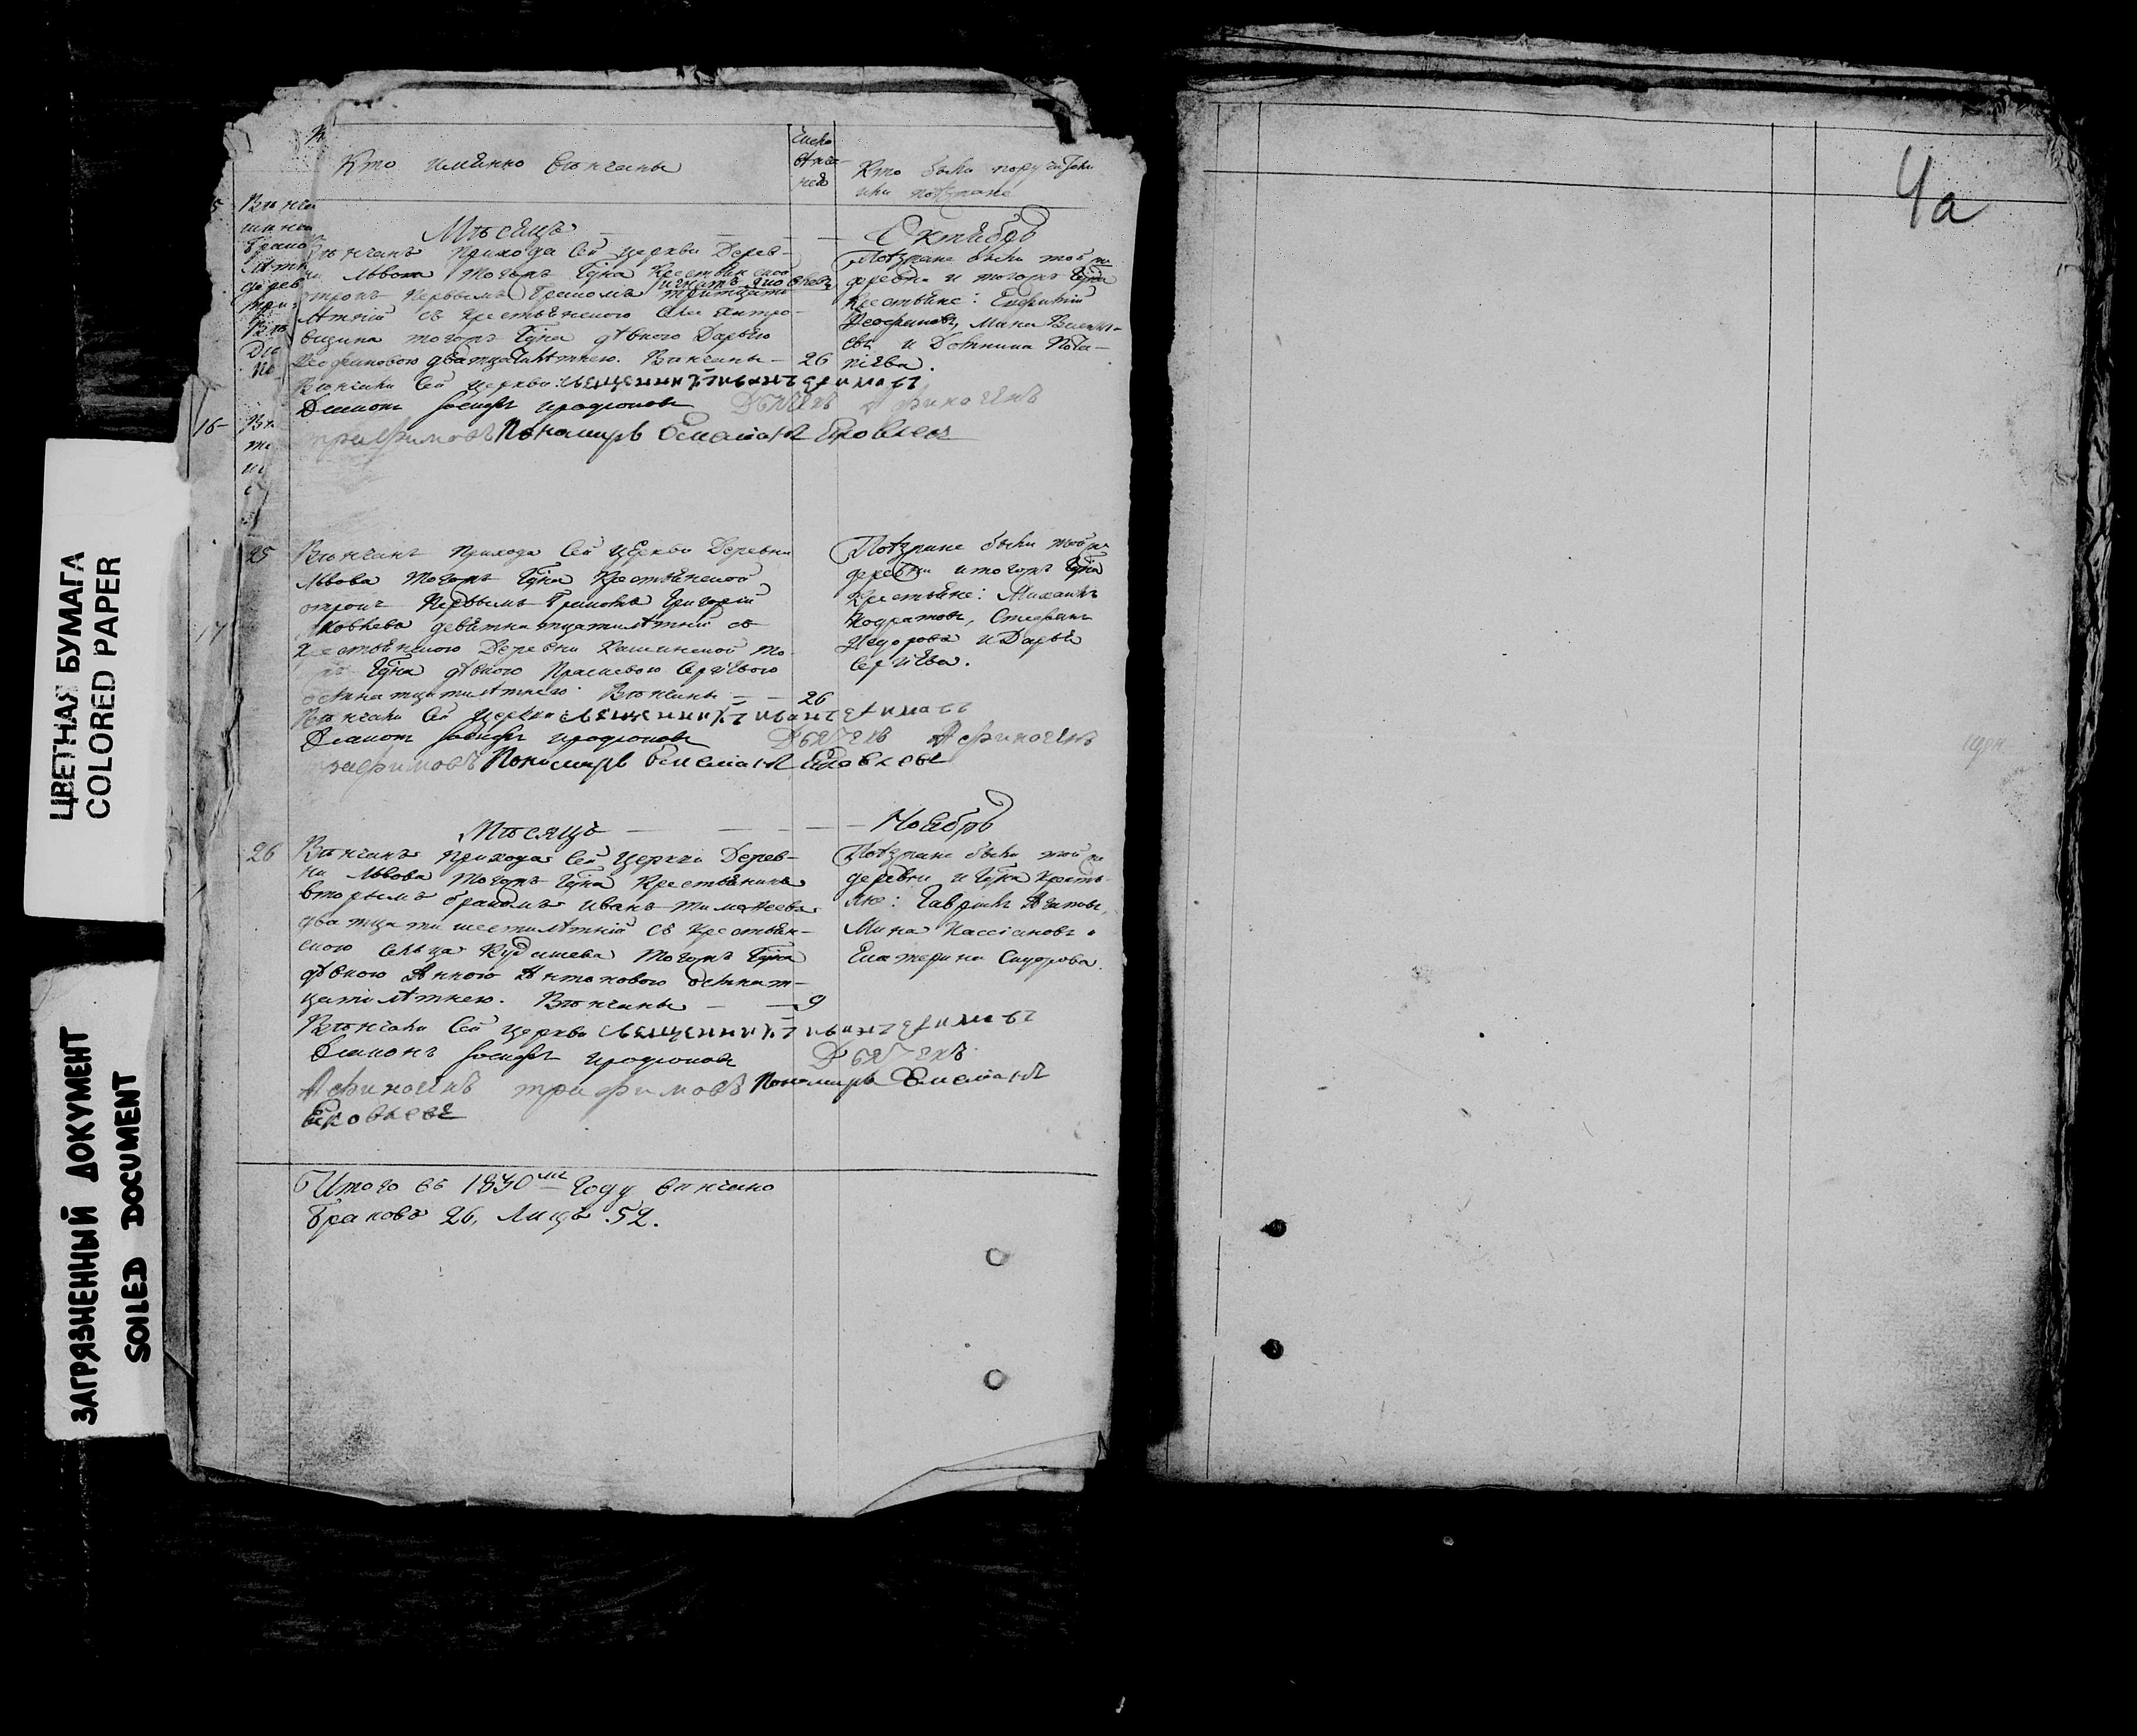 ЦВЕТНАЯ БУМАГА
COLORED PAPER
ЗАГРЯЗНЕННЫЙ ДОКУМЕНТ
SOILED DOCUMENT
Кто именно венчаны
Кто были поручители
или поезжане
Мѣсяцъ
Октябрь
Вѣнчанъ прихода сей церкви Дерев-
ни Львова тогожъ Г҃дна крестьянской
отрокъ первымъ бракомъ Игнатъ тритцати
лѣтній съ крестьянскою
вицина тогожъ Г҃дна дѣвкою Дарьею
дватцатилѣтнею. Вѣнчаны 26
Вѣнчали сей церкви священникъ иванъ ефимовъ
Диаконъ Иосифъ иродионовъ Дьячекъ Афиногенъ
трифимовъ Пономарь Емельянъ Яковлевъ
Поезжане были тойже
деревни и тогожъ Г҃дна
крестьяне:
Мина Василь-
евъ и Домнина Пота-
піева.
25
Вѣнчанъ прихода сей церкви Деревни
Львова тогожъ Г҃дна крестьянской
отрокъ первымъ бракомъ Григорій
Яковлевъ девятнатцатилѣтній съ
крестьянскою Деревни тог-
жъ Г҃дна дѣвкою Прасковьею Сергіевою
осмнатцатилѣтнею. Вѣнчаны 26
Вѣнчали сей церкви священникъ иванъ ефимовъ
Диаконъ Иосифъ иродионовъ Дьячекъ Афиногенъ
трифимовъ Пономарь Емельянъ Яковлевъ
Поезжане были тойже
деревни и тогожъ Г҃дна
крестьяне: Михаилъ
Кодратовъ, Стефанъ
Ѳедоровъ и Дарья
Сергіева.
Мѣсяцъ
Ноябрь
26
Вѣнчанъ прихода сей церкви Дерев-
ни Львова тогожъ Г҃дна крестьянинъ
вторымъ бракомъ иванъ тимоѳеевъ
дватцати шестилѣтній съ крестьян-
скою сельца Кудашева тогожъ Г҃дна
дѣвкою Анною Антоновою осмнат-
цатилѣтнею. Вѣнчаны 9
Вѣнчали сей церкви священникъ иванъ ефимовъ
Диаконъ Иосифъ иродионовъ Дьячекъ
Афиногенъ трифимовъ Пономарь Емельянъ
Яковлевъ
Поезжане были тойже
деревни и Г҃дна кресть-
яне: Гаврилъ
Мина Кассіановъ и
Екатерина Сидорова.
Итого въ 1830мъ Году вѣнчано
браковъ 26, Лицъ 52.
16
17
4а